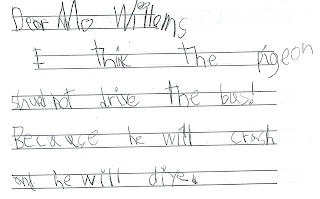 Dear Mo Willems
I thik the pigeon
shud not drive the bus!
Becauce he will crash
and he will diye.